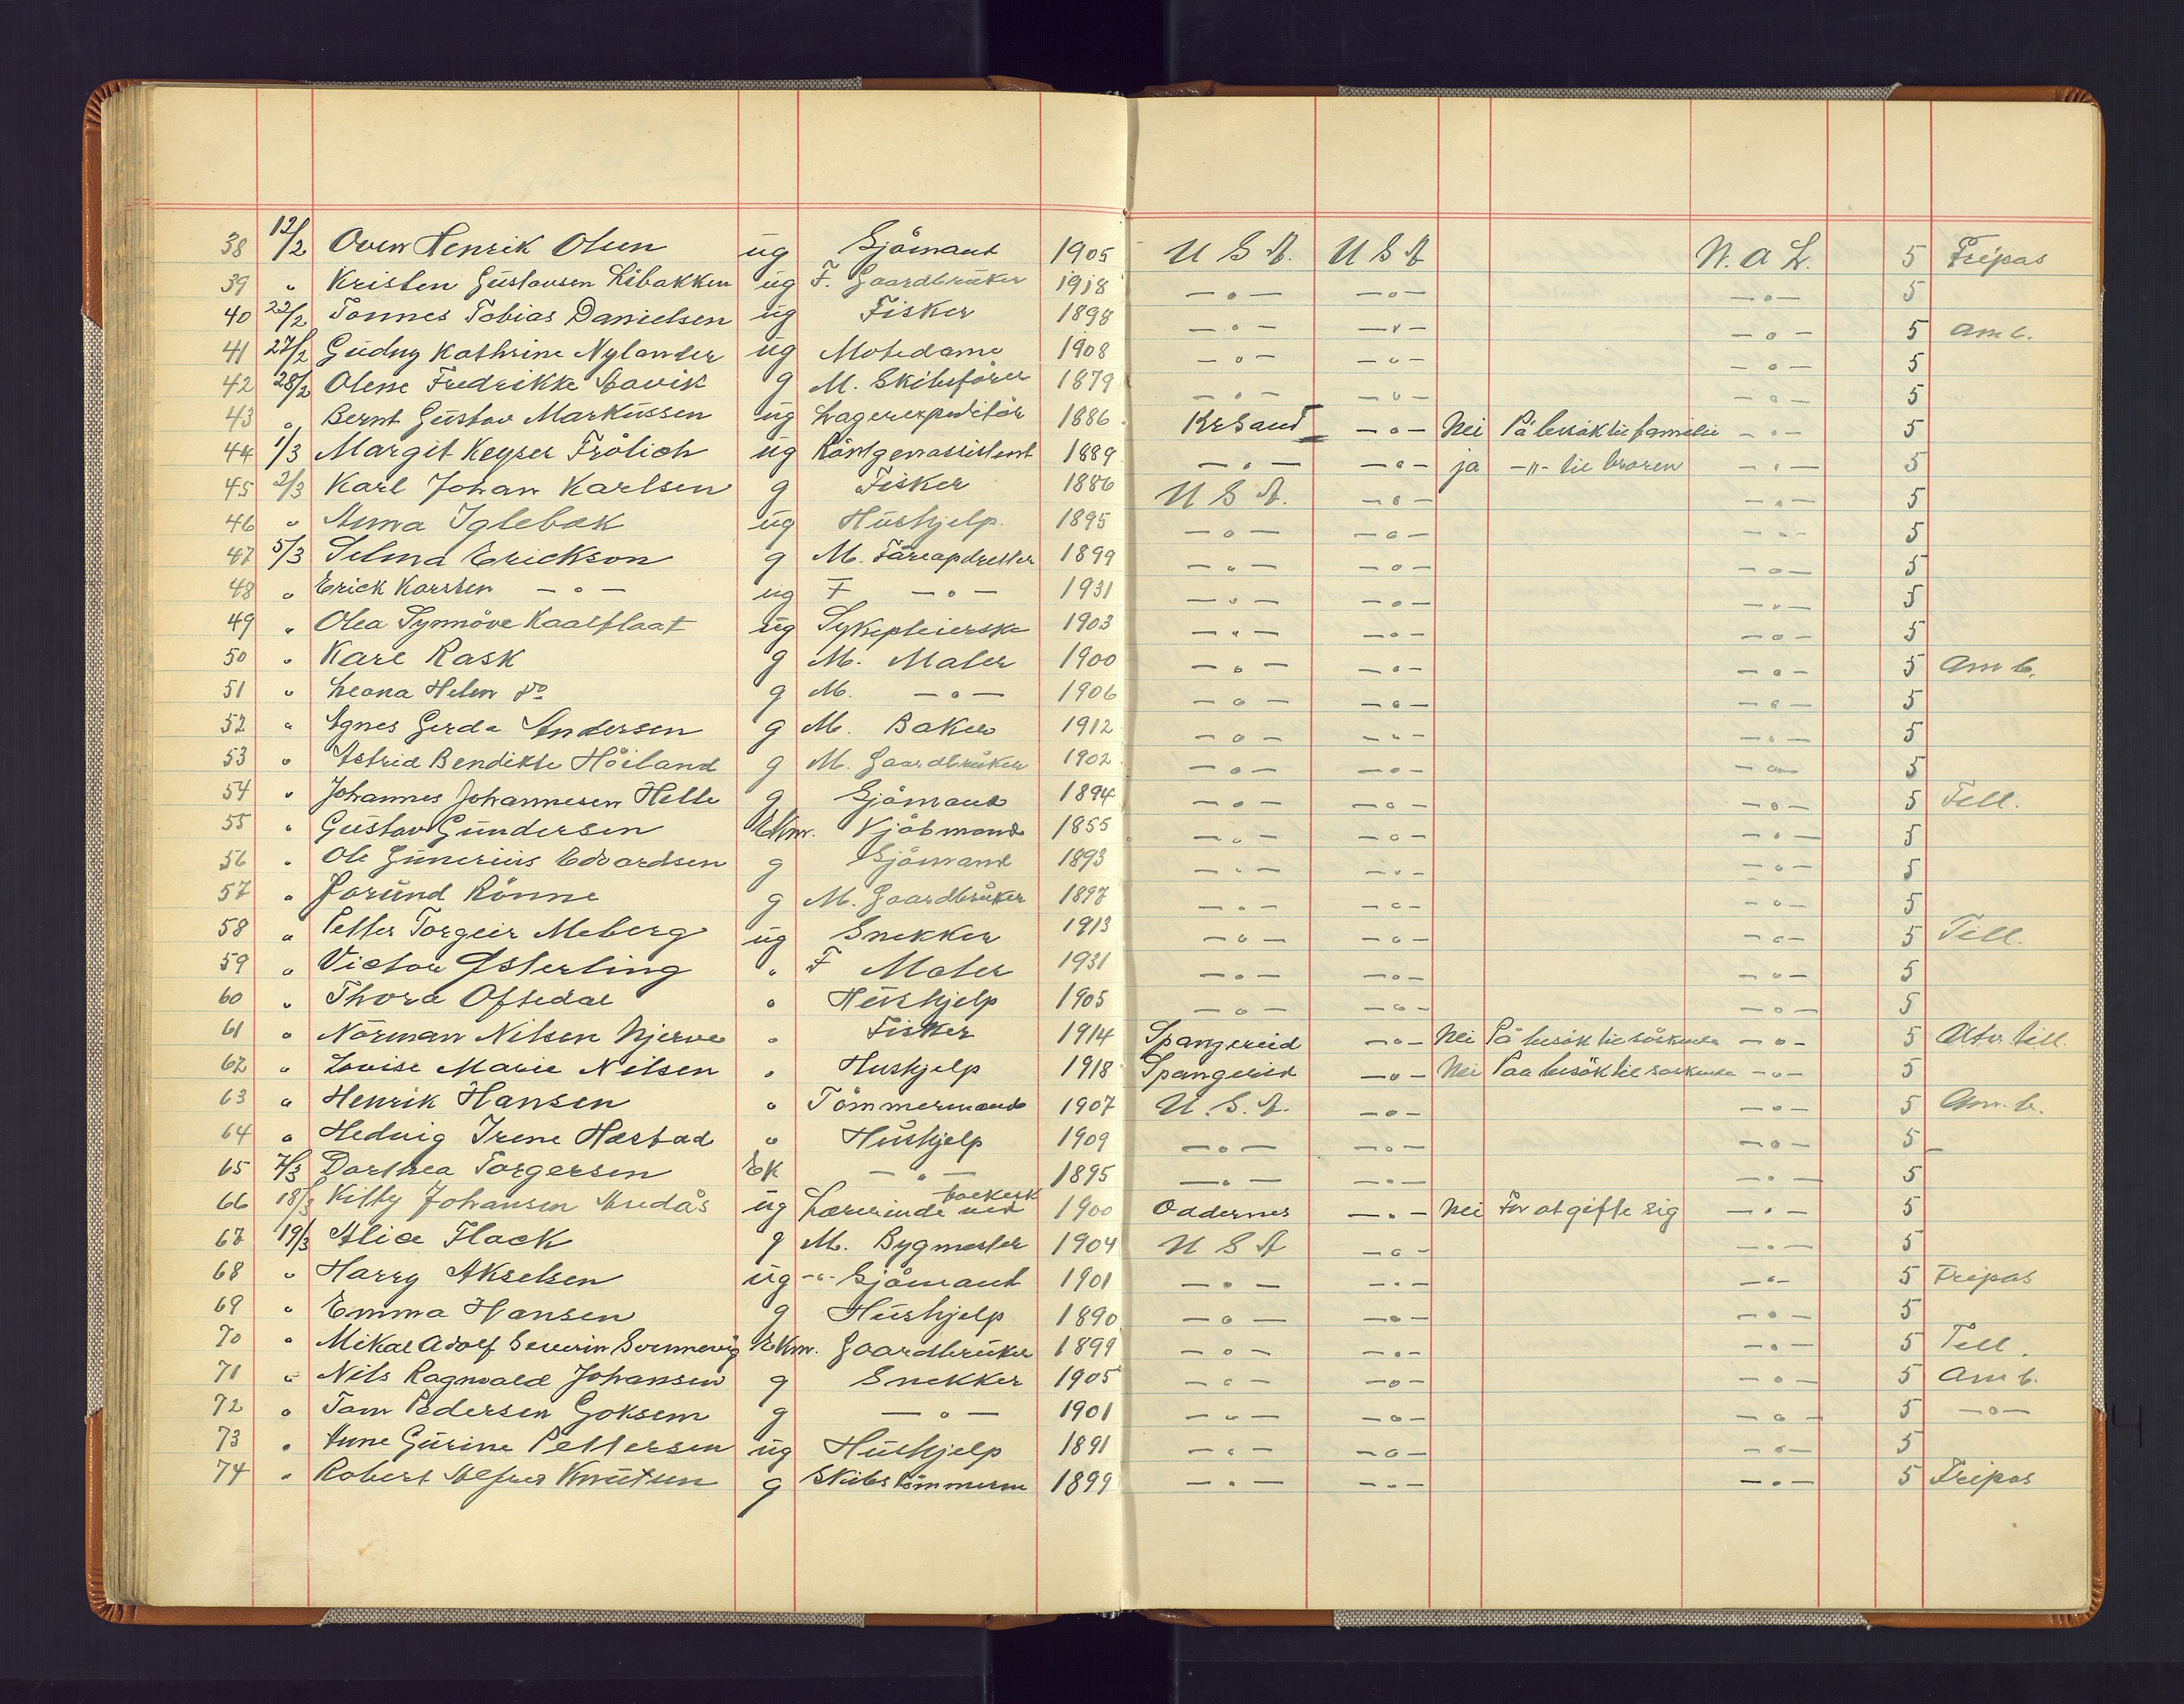 38 12/2 Oven Henrik Olsen ug Sjömand 1905 U S A. U S A N. A L. 5 Fripas
39 " Kristen Gustavsen Libakken ug F. Gaardbruker 1918 —"— —"— —"— 5
40 22/2 Tonnes Tobias Danielsen ug Fisker 1898 —"— —"— —"— 5 Am b.
41 27/2 Gudny Kathrine Nylander ug Motedame 1908 —"— —"— —"— 5
42 28/2 Olene Fredrikke Aavik g M. Skibsförer 1879 —"— —"— —"— 5
43 " Bernt Gustav Markussen ug Lagerexpeditör 1886 KrSand —"— Nei På besök til familie —"— 5
44 1/3 Margit Keyser Frölich ug Röntgenassistent 1889 —"— —"— ja —"— til broren —"— 5
45 2/3 Karl Johan Karlsen g Fisker 1886 U S A. —"— —"— 5
46 " Anna Iglebæk ug Hushjelp. 1895 —"— —"— —"— 5
47 5/3 Selma Erickson g M. 1899 —"— —"— —"— 5
48 " Erick Karsten —"— ug F —"— 1931 —"— —"— —"— 5
49 " Olea Synnöve Kaalflaat ug Sykepleierske 1903 —"— —"— —"— 5
50 " Kare Rask g M. Maler 1900 —"— —"— —"— 5 Am b.
51 " Leona Helen do g M. —"— 1906 —"— —"— —"— 5
52 " Agnes Gerda Andersen g M. Baker 1912 —"— —"— —"— 5
53 " Astrid Bendikte Höiland g M. Gaardbruker 1902 —"— —"— —"— 5
54 " Johannes Johannesen Helle g Sjömand 1894 —"— —"— —"— 5 Till.
55 " Gustav Gundersen Ekm. Kjöbmand 1855 —"— —"— —"— 5
56 " Ole Gunerius Edvardsen g Sjömand 1893 —"— —"— —"— 5
57 " Jorund Rönne g M. Gaardbruker 1897 —"— —"— —"— 5
58 " Petter Torgeir Meberg ug Snekker 1913 —"— —"— —"— 5 Till.
59 " Victor Østerling " F Maler 1931 —"— —"— —"— 5
60 " Thora Oftedal " Hushjelp 1905 —"— —"— —"— 5
61 " Norman Nilsen Njerve " Fisker 1914 Spangereid —"— Nei På besök til söskende —"— 5 Utv. till.
62 " Lovise Marie Nilsen " Hushjelp 1918 Spangereid —"— Nei Paa besök til soskende —"— 5
63 " Henrik Hansen " Tömmermand 1907 U. S. A. —"— —"— 5 Am. b.
64 " Hedvig Irene Hæstad " Hushjelp 1909 —"— —"— —"— 5
65 7/3 Dorthea Torgersen Ek —"— 1895 —"— —"— —"— 5
66 18/3 Kitty Johansen Aredås ug Lærerinde ved 1900 Oddernes —"— Nei For at gifte sig —"— 5
67 19/3 Alice Flack g M. Bygmester 1904 U S A —"— —"— 5
68 " Harry Akselsen ug —"— Sjömand 1901 —"— —"— —"— 5 Fripas
69 " Emma Hansen g Hushjelp 1890 —"— —"— —"— 5
70 " Mikal Adolf Severin Sornnevig Ekm. Gaardbruker 1899 —"— —"— —"— 5 Till.
71 " Nils Ragnvald Johansen g Snekker 1905 —"— —"— —"— 5 Am b.
72 " Tom Pedersen Goksem g —"— 1901 —"— —"— —"— 5 —"—
73 " Anne Gurine Pettersen ug Hushjelp 1891 —"— —"— —"— 5
74 " Robert Alfred Knutsen g Skibstömmerm 1899 —"— —"— —"— 5 Fripas